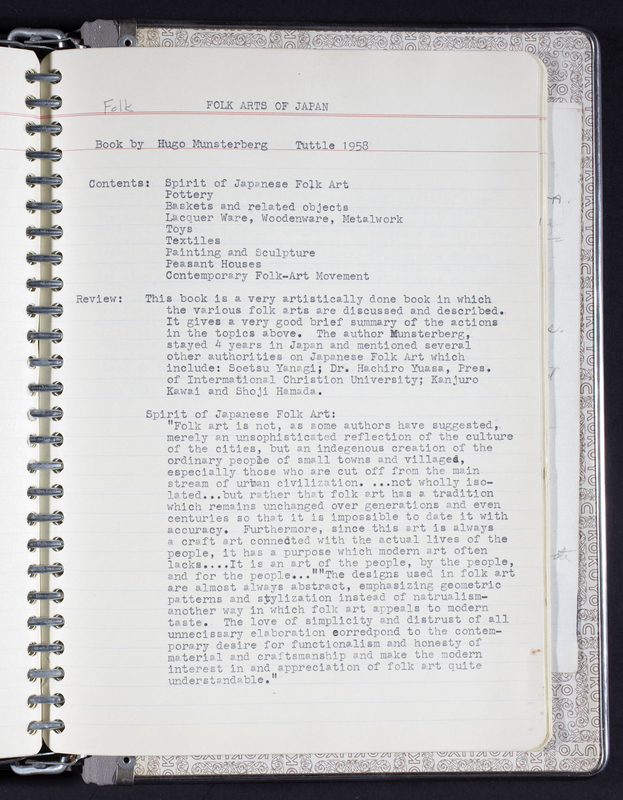 Folk
FOLK ARTS OF JAPAN
Book by Hugo Munsterberg Tuttle 1958
Contents: Spirit of Japanese Folk Art
Pottery
Baskets and related objects
Lacquer Ware, Woodenware, Metalwork
Toys
Textiles
Painting and Sculpture
Peasant Houses
Contemporary Folk-Art Movement
Review: This book is a very artistically done book in which
the various folk arts are discussed and described.
It gives a very good brief summary of the actions
in the topics above. The author Munsterberg,
stayed 4 years in Japan and mentioned several
other authorities on Japanese Folk Art which
include: Soetsu Yanagi; Dr. Hachiro Yuasa, Pres.
of Intermational Christion University; Kanjuro
Kawai and Shoji Hamada.
Spirit of Japanese Folk Art:
"Folk art is not, as some authors have suggested,
merely an unsophisticated reflection of the culture
of the cities, but an indegenous creation of the
ordinary people of small towns and villages,
especially those who are cut off from the main
stream of urban civilization. ...not wholly iso-
lated...but rather that folk art has a tradition
which remains unchanged over generations and even
centuries so that it is impossible to date it with
accuracy. Furthermore, since this art is always
a craft art connedted with the actual lives of the
people, it has a purpose which modern art often
lacks....It is an art of the people, by the people,
and for the people...""The designs used in folk art
are almost always abstract, emphasizing geometric
patterns and stylization instead of natrualism-
another way in which folk art appeals to modern
taste. The love of simplicity and distrust of all
unnecissary elaboration eorredpond to the contem-
porary desire for functionalism and honesty of
material and craftsmanship and make the modern
interest in and appreciation of folk art quite
understandable."